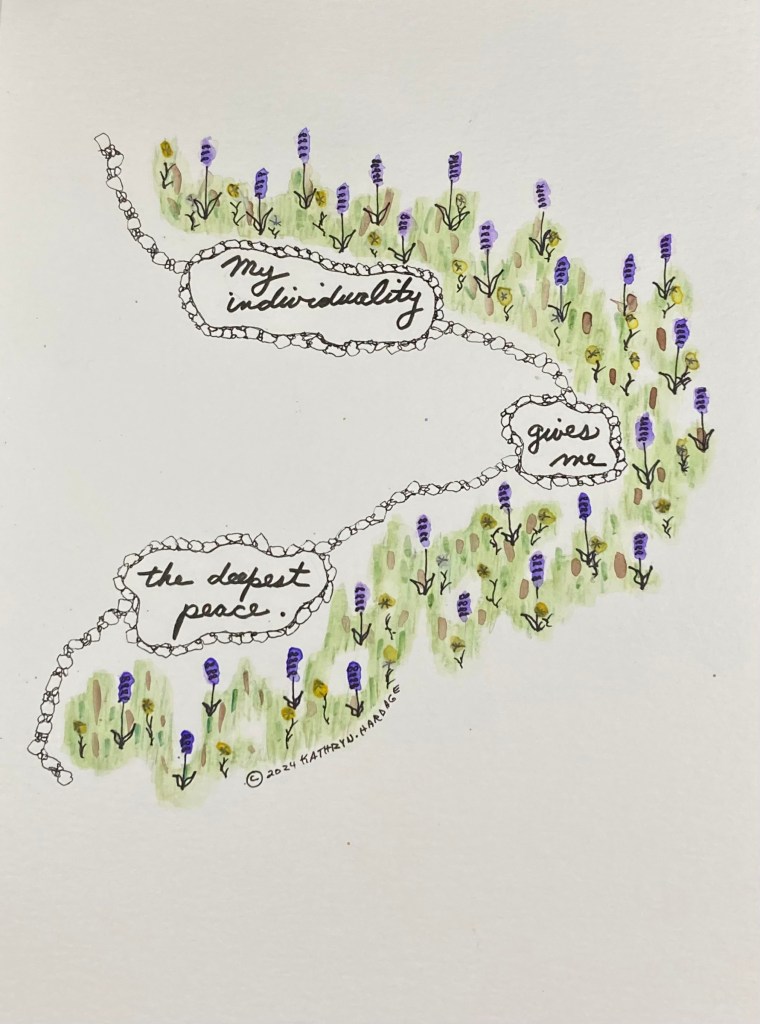 My
individuality
gives
me
the deepest
peace.
© 2024 KATHRYN·HARDAGE